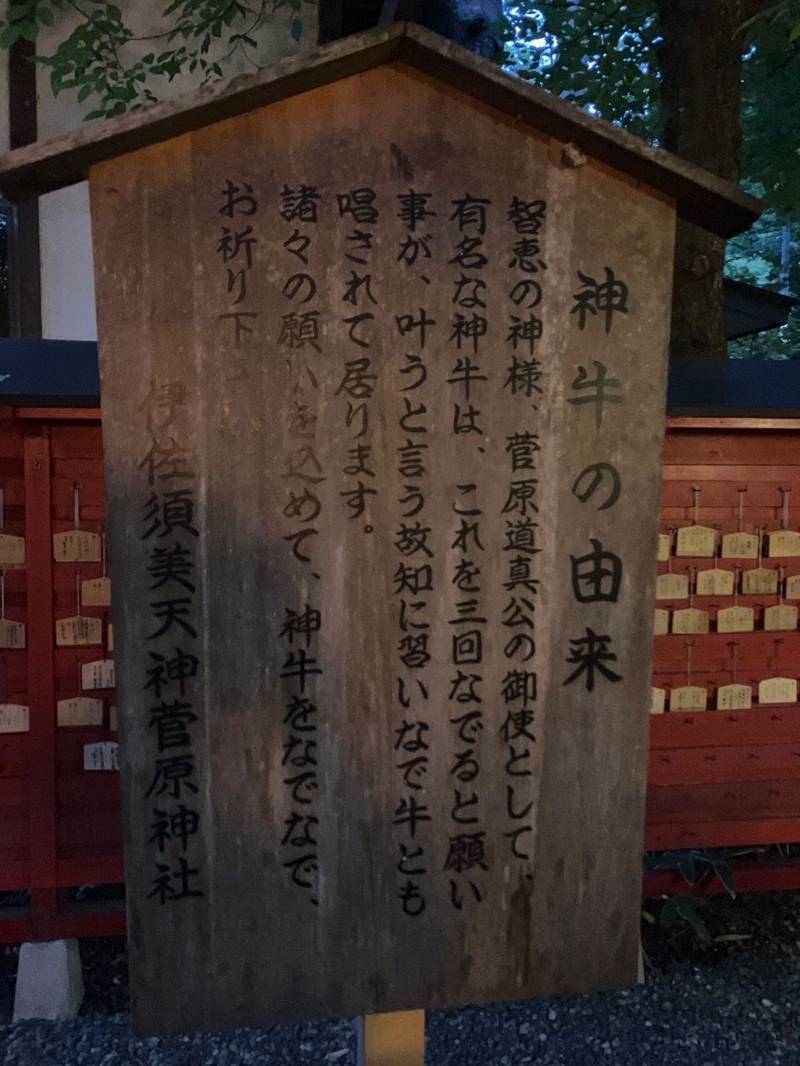 神牛の由来
智恵の神様、菅原道真公の御使として、
有名な神牛は、これを三回なでると願い
事が、叶うと言う故知に習いなで牛とも
唱されて居ります。
諸々の願いを込めて、神牛をなでなで、
お祈り下さい
伊佐須美天神菅原神社